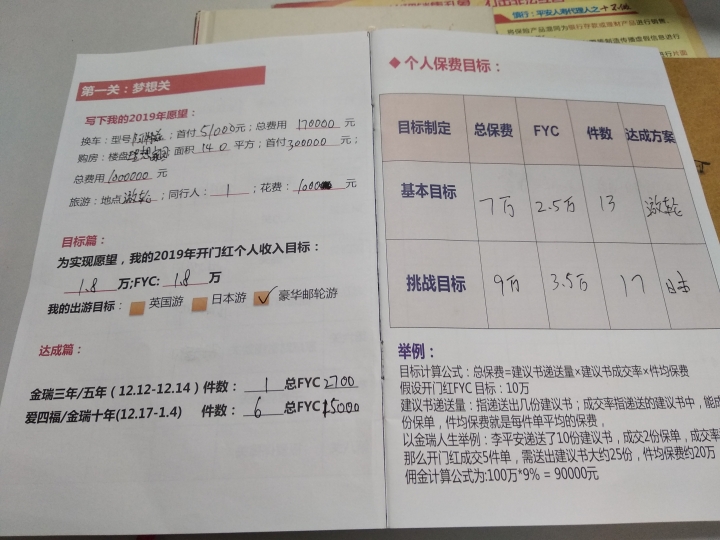 第一关：梦想关
写下我的2019年愿望：
换车：型号 ；首付51000元；总费用 170000 元
购房：楼盘 面积 140 平方；首付300000 元；
总费用1000000 元
旅游：地点游轮；同行人：1；花费：1000 元
目标篇：
为实现愿望，我的2019年开门红个人收入目标：
1.8 万;FYC: 1.8 万
我的出游目标： 英国游 日本游 ✓ 豪华邮轮游
达成篇：
金瑞三年/五年（12.12-12.14）件数： 1 总FYC 2700
爱四福/金瑞十年(12.17-1.4) 件数： 6 总FYC 15000
银行；平安人寿代理人之
将保险产品混同为银行存款或理财产品进行销售
◆ 个人保费目标：
目标制定 总保费 FYC 件数 达成方案
基本目标 7万 2.5万 13 游轮
挑战目标 9万 3.5万 17 日本
举例：
目标计算公式：总保费=建议书递送量×建议书成交率×件均保费
假设开门红FYC 目标：10万
建议书递送量：指递送出几份建议书；成交率指递送的建议书中，能成
份保单，件均保费就是每件单平均的保费，
以金瑞人生举例：李平安递送了10份建议书，成交2份保单，成交率
那么开门红成交5件单，需送出建议书大约25份，件均保费约20万
佣金计算公式为:100万*9% = 90000元